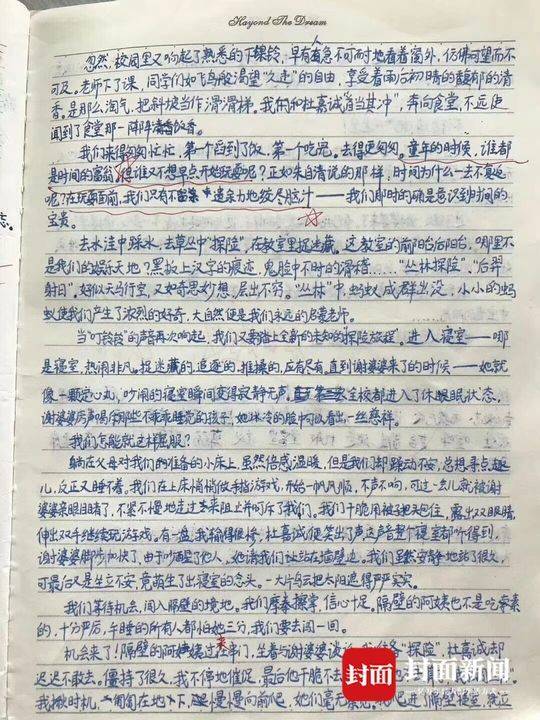 Hayond The Dream
忽然,校园里又响起了熟悉的下课铃,早有人急不可耐地看着窗外,仿佛可望而不
可及。老师下了课,同学们如飞鸟般渴望“久违”的自由,享受着雨后初晴的馥郁的清
香。是那么淘气,把斜坡当作滑滑梯。我和杜嘉诚“首当其冲”,奔向食堂,不远便
闻到了食堂那一阵阵清香饭香。
我们来得匆匆忙忙,第一个舀到了饭,第一个吃完。去得更匆匆。童年的时候,谁都
是时间的富翁,但谁不想早点开始玩耍呢?正如朱自清说的那样,时间为什么一去不复返
呢?在玩耍面前,我们只有不留余遗余力地绞尽脑汁——我们那时的确是意识到时间的
宝贵。
去水洼中踩水,去草丛中“探险”,在教室里捉迷藏。这教室的前阳台后阳台,哪里不
是我们的娱乐天地?黑板上汉字的痕迹,鬼脸中不时的滑稽……“丛林探险”、“后羿
射日”。好似天马行空,又如奇思妙想,层出不穷。“丛林”中,蚂蚁成群出没,小小的蚂
蚁使我们产生了浓烈的好奇,大自然便是我们永远的启蒙老师。
当“叮铃铃”的声音再次响起,我们又要踏上全新的未知的“探险旅程”。进入寝室——哪
是寝室,热闹非凡。捉迷藏的,追逐的,推搡的,应有尽有,直到谢婆婆来了的时候——她就
像一颗定心丸,吵闹的寝室瞬间变得寂静无声。全校都进入了休眠状态,
谢婆婆厉声喝斥那些不乖乖睡觉的孩子,她冰冷的脸中可以看出一丝慈祥。
我们怎能就这样屈服?
躺在父母对我们的准备的小床上,虽然倍感温暖,但是我们却躁动不安,总想寻点趣
儿,反正又睡不着。我们在上床悄悄做手指游戏,开始一帆风顺,不声不响,可过一会儿就被谢
婆婆亲眼目睹了,不紧不慢地走过来阻止并呵斥了我们。我们干脆用被子把头包住,露出双眼睛,
伸出双手继续玩游戏。有一盘,我输得很惨,杜嘉诚便笑出了声,这声音整个寝室都听得到,
谢婆婆脚步加快了,由于吵醒了他人,她请我们去站在墙壁边。我们虽然安静地站了很久,
可最后又是坐立不安,竟萌生了出寝室的念头。一大片乌云把太阳遮得严严实实。
我们等待机会,闯入隔壁的境地。我们摩拳擦掌,信心十足。隔壁的阿姨也不是吃素
的,十分严厉,午睡的所有人都怕她三分,我们要去闯一回。
机会来了!隔壁的阿姨过来串门,坐着与谢婆婆
“探险”,杜嘉诚却
迟迟不敢去。僵持了很久,我不停地催促,最后他干脆不去
我瞅时机,匍匐在地下,慢慢向前爬,她们毫无察觉。我爬进了隔壁寝室,就
封面
封面新闻